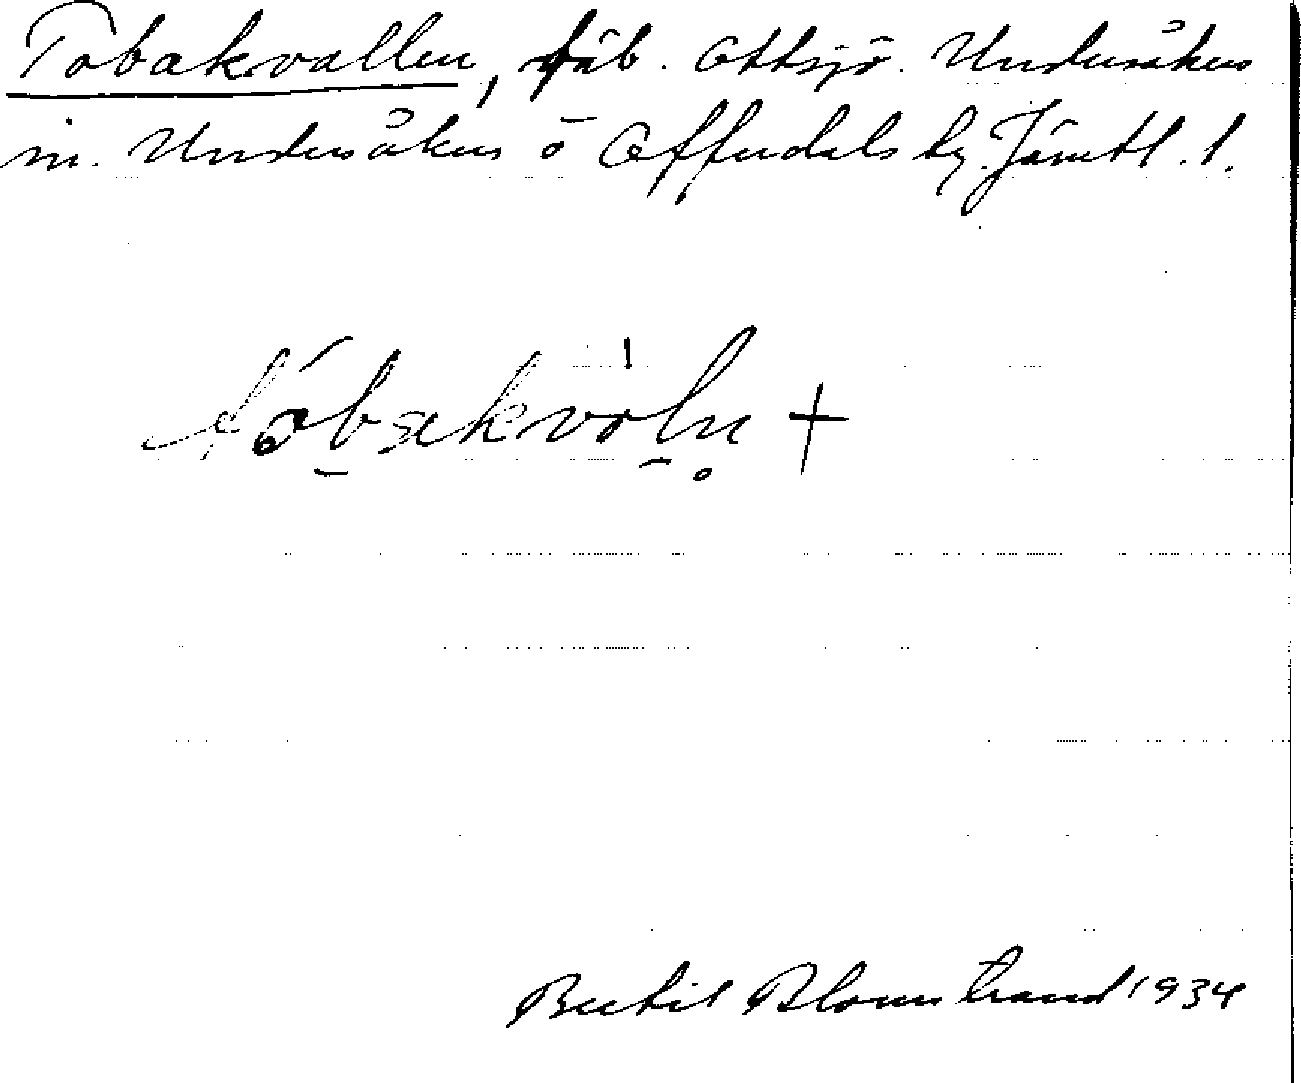 Tobakvallen, fäb. Ottsjö. Undersåkers
sn. Undersåkers o Offerdals tg. Jämtl. l.
Bertil Blomstrand 1934